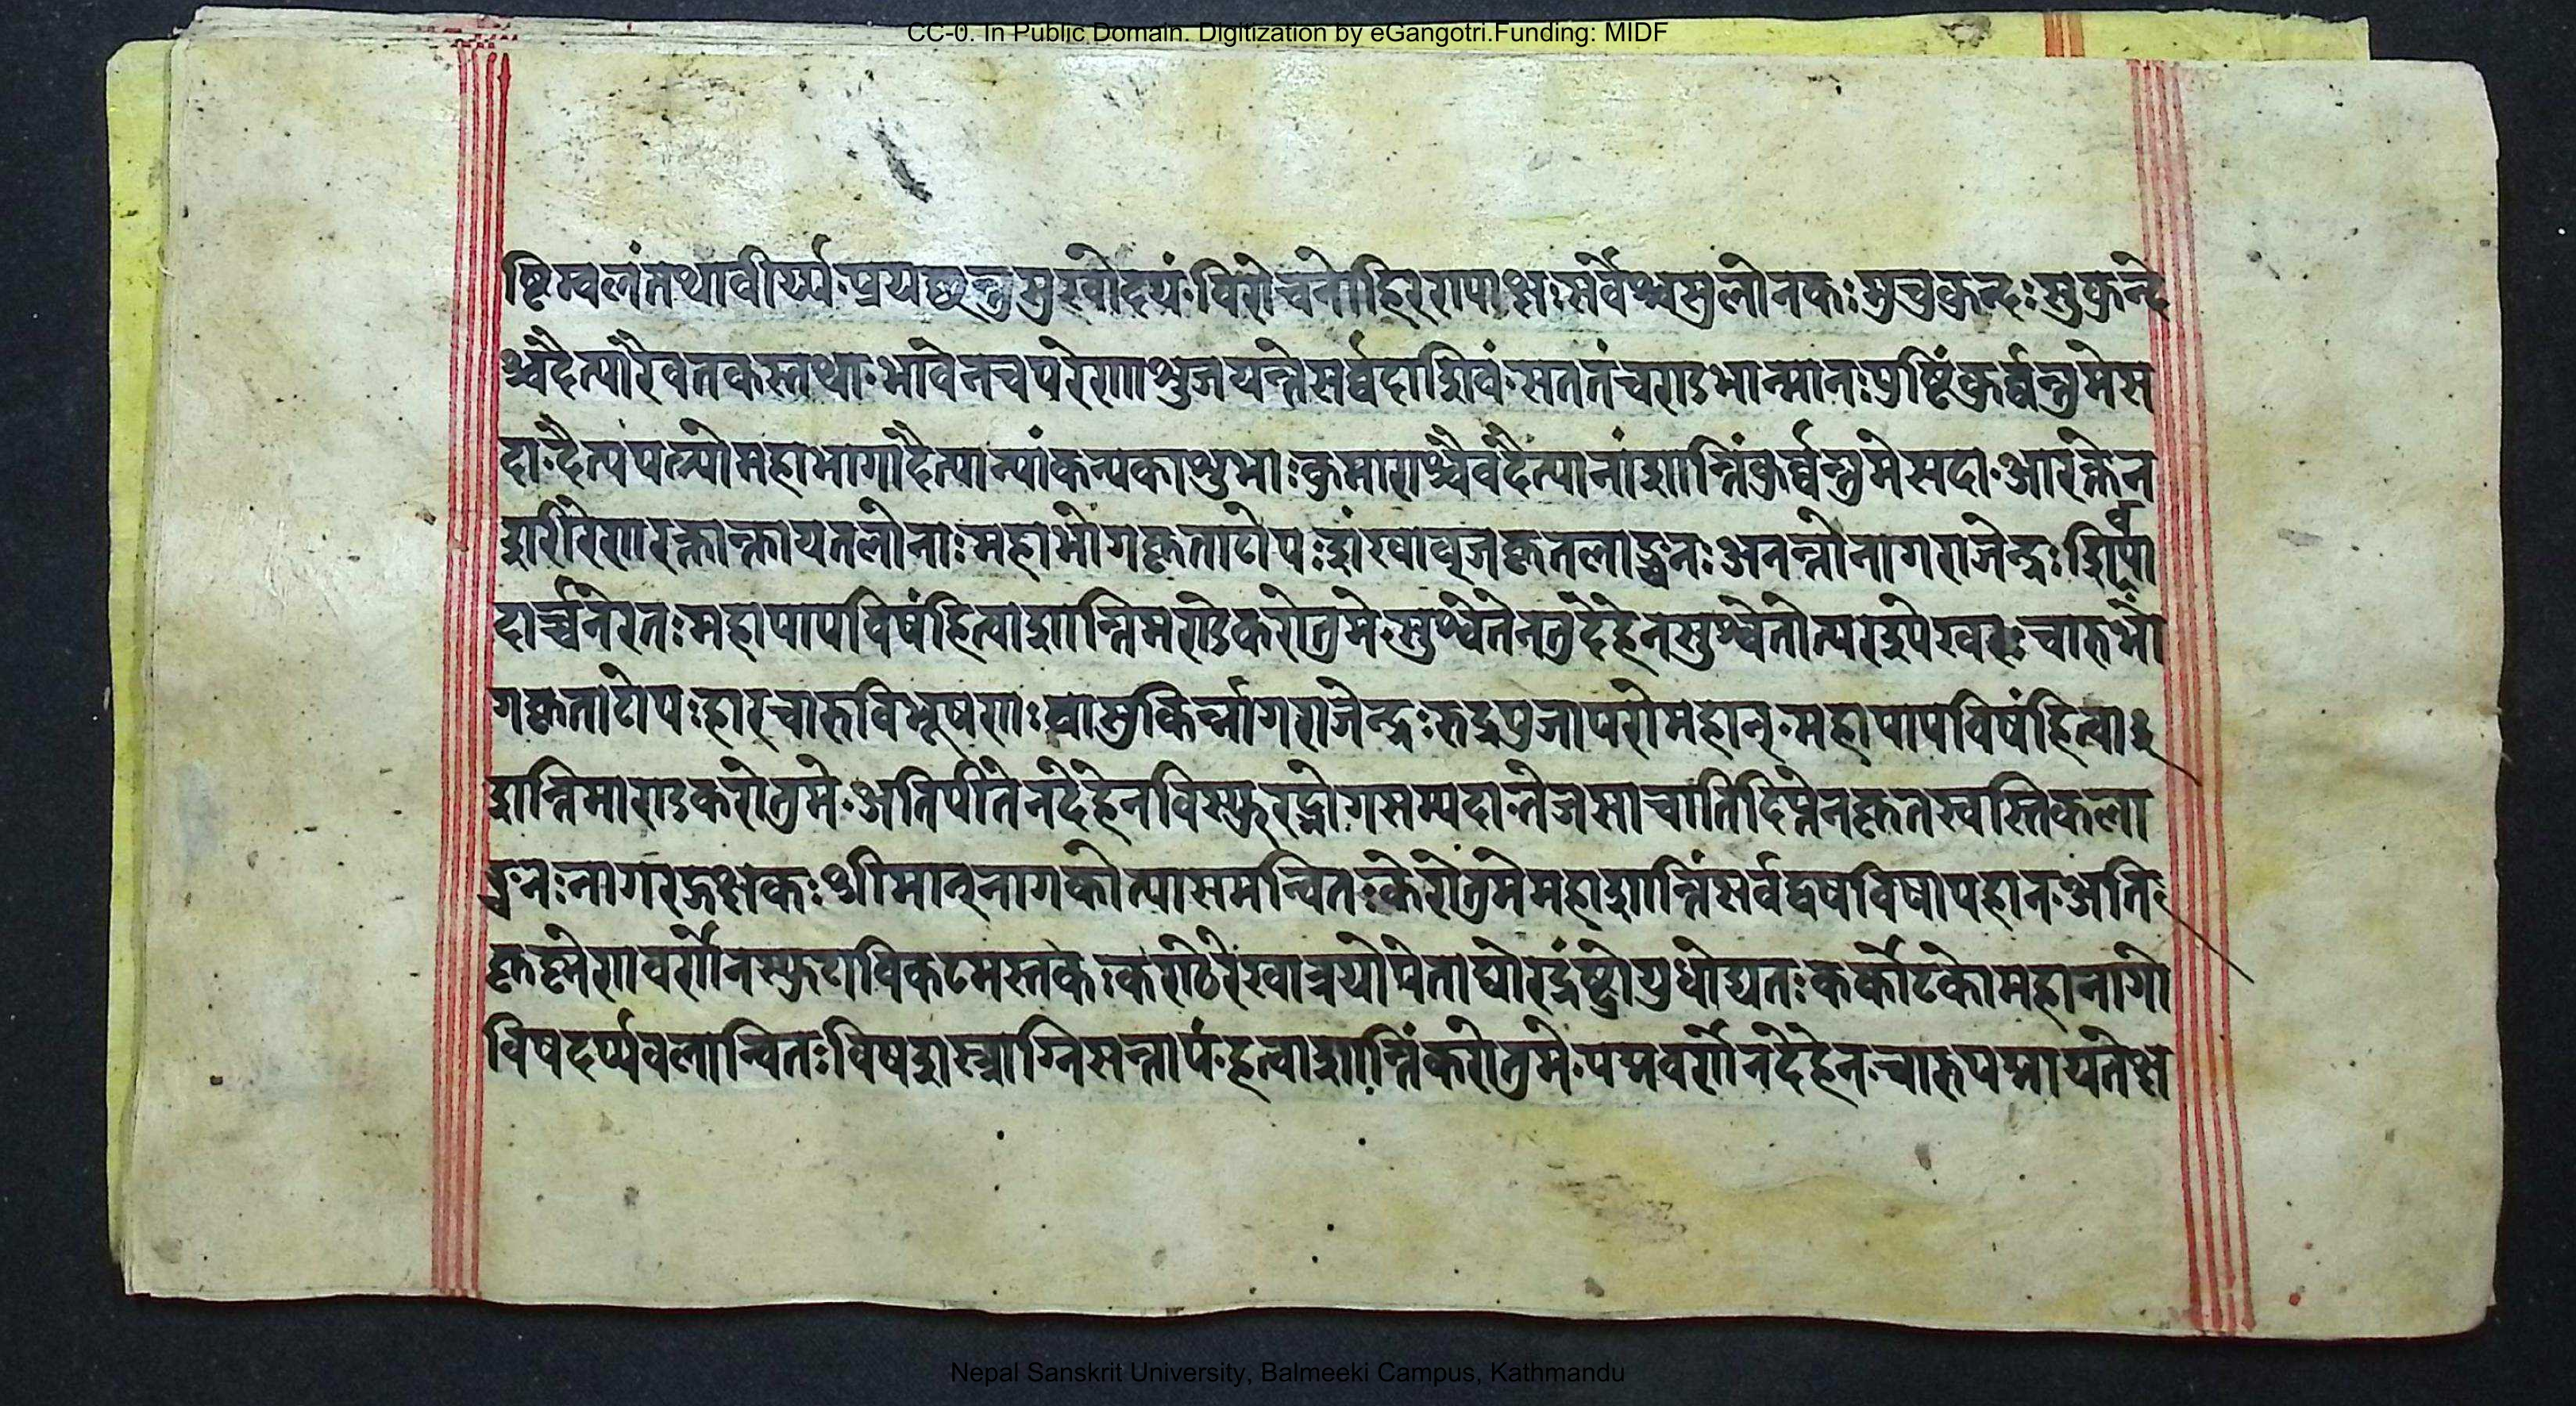 CC-0. In Public Domain. Digitization by eGangotri.Funding: MIDF
ष्टिम्वलंतथावीर्य्य॰प्रयछन्तुसुखोदयं॰विरोचनोहिररापाक्षःसर्वेश्चसुलोनकःमुचकुन्दःसुकुन्दे
श्चदैत्योरैवतकस्तथा॰भावेनचपरेणाशुजयन्तेसर्व्वदाशिवं॰सततंचराडभान्मानःपुष्टिंकुर्व्वन्तुमेस
दा॰दैत्यपत्न्योमहाभागादैत्यान्यांकन्यकाशुभाःकुमाराश्चैवदैत्यानांशान्तिंकुर्व्वन्तुमेसदा॰आरक्तेन
शरीरेणारक्तान्तायतलोनाःमहाभोगकृताटोपःशंखाब्जकृतलाङ्छनःअनन्तोनागराजेन्द्रःशिर्वपा
दार्च्चनेरतःमहापापविषंहित्वाशान्तिमराडेकरोतुमे॰सुश्वेतेनतुदेहेनसुश्वेतोत्परशेखरःचारुभो
गकृताटोपःहारचारुविभूषणःवासुकिर्न्नागराजेन्द्रःरुद्रपुजापरोमहान्॰महापापविषंहित्वा
शान्तिमाराडकरोतुमे॰अतिपीतेनदेहेनविस्फुरद्भोगसम्पदा॰तेजसाचातिदिप्तेनकृतस्वस्तिकला
ङ्छनःनागरट्तक्षकःश्रीमान्नागकोत्यासमन्वितःकरोतुमेमहाशान्तिंसर्वद्वषविषापहान॰अति
कृष्णेणवर्णेनस्फुटाविकटमस्तकःकराठरेखात्रयोपेताघोरदंष्ट्रोयुधोद्यतःकर्कोटकोमहानागो
विषदर्प्पवलान्वितःविषशस्त्राग्निसन्तापं॰हत्वाशान्तिंकरोतुमे॰पद्मवर्णेनदेहेन॰चारुपद्मायतेक्ष
Nepal Sanskrit University, Balmeeki Campus, Kathmandu